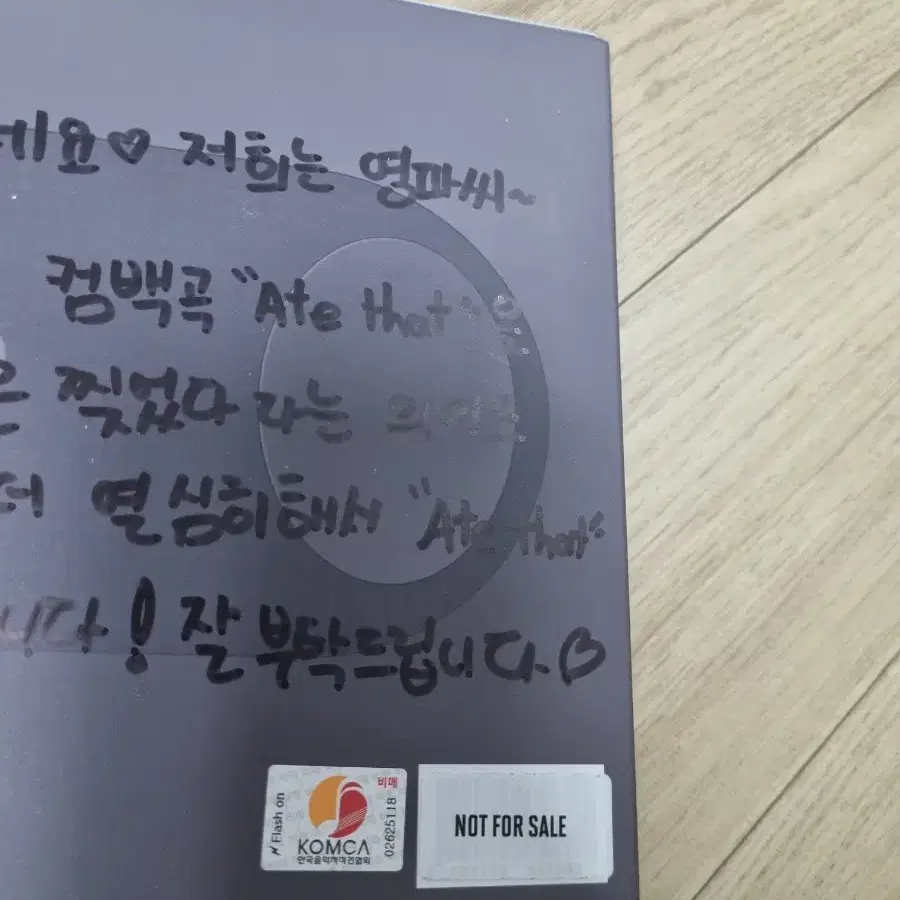 세요♡ 저희는 영파씨~
컴백곡 "Ate that"은
은 찢었다 라는 의미로
더 열심히해서 "Ate that"
니다! 잘 부탁드립니다.♡
Flash on
비매
KOMCA
한국음악저작권협회
02625118
NOT FOR SALE